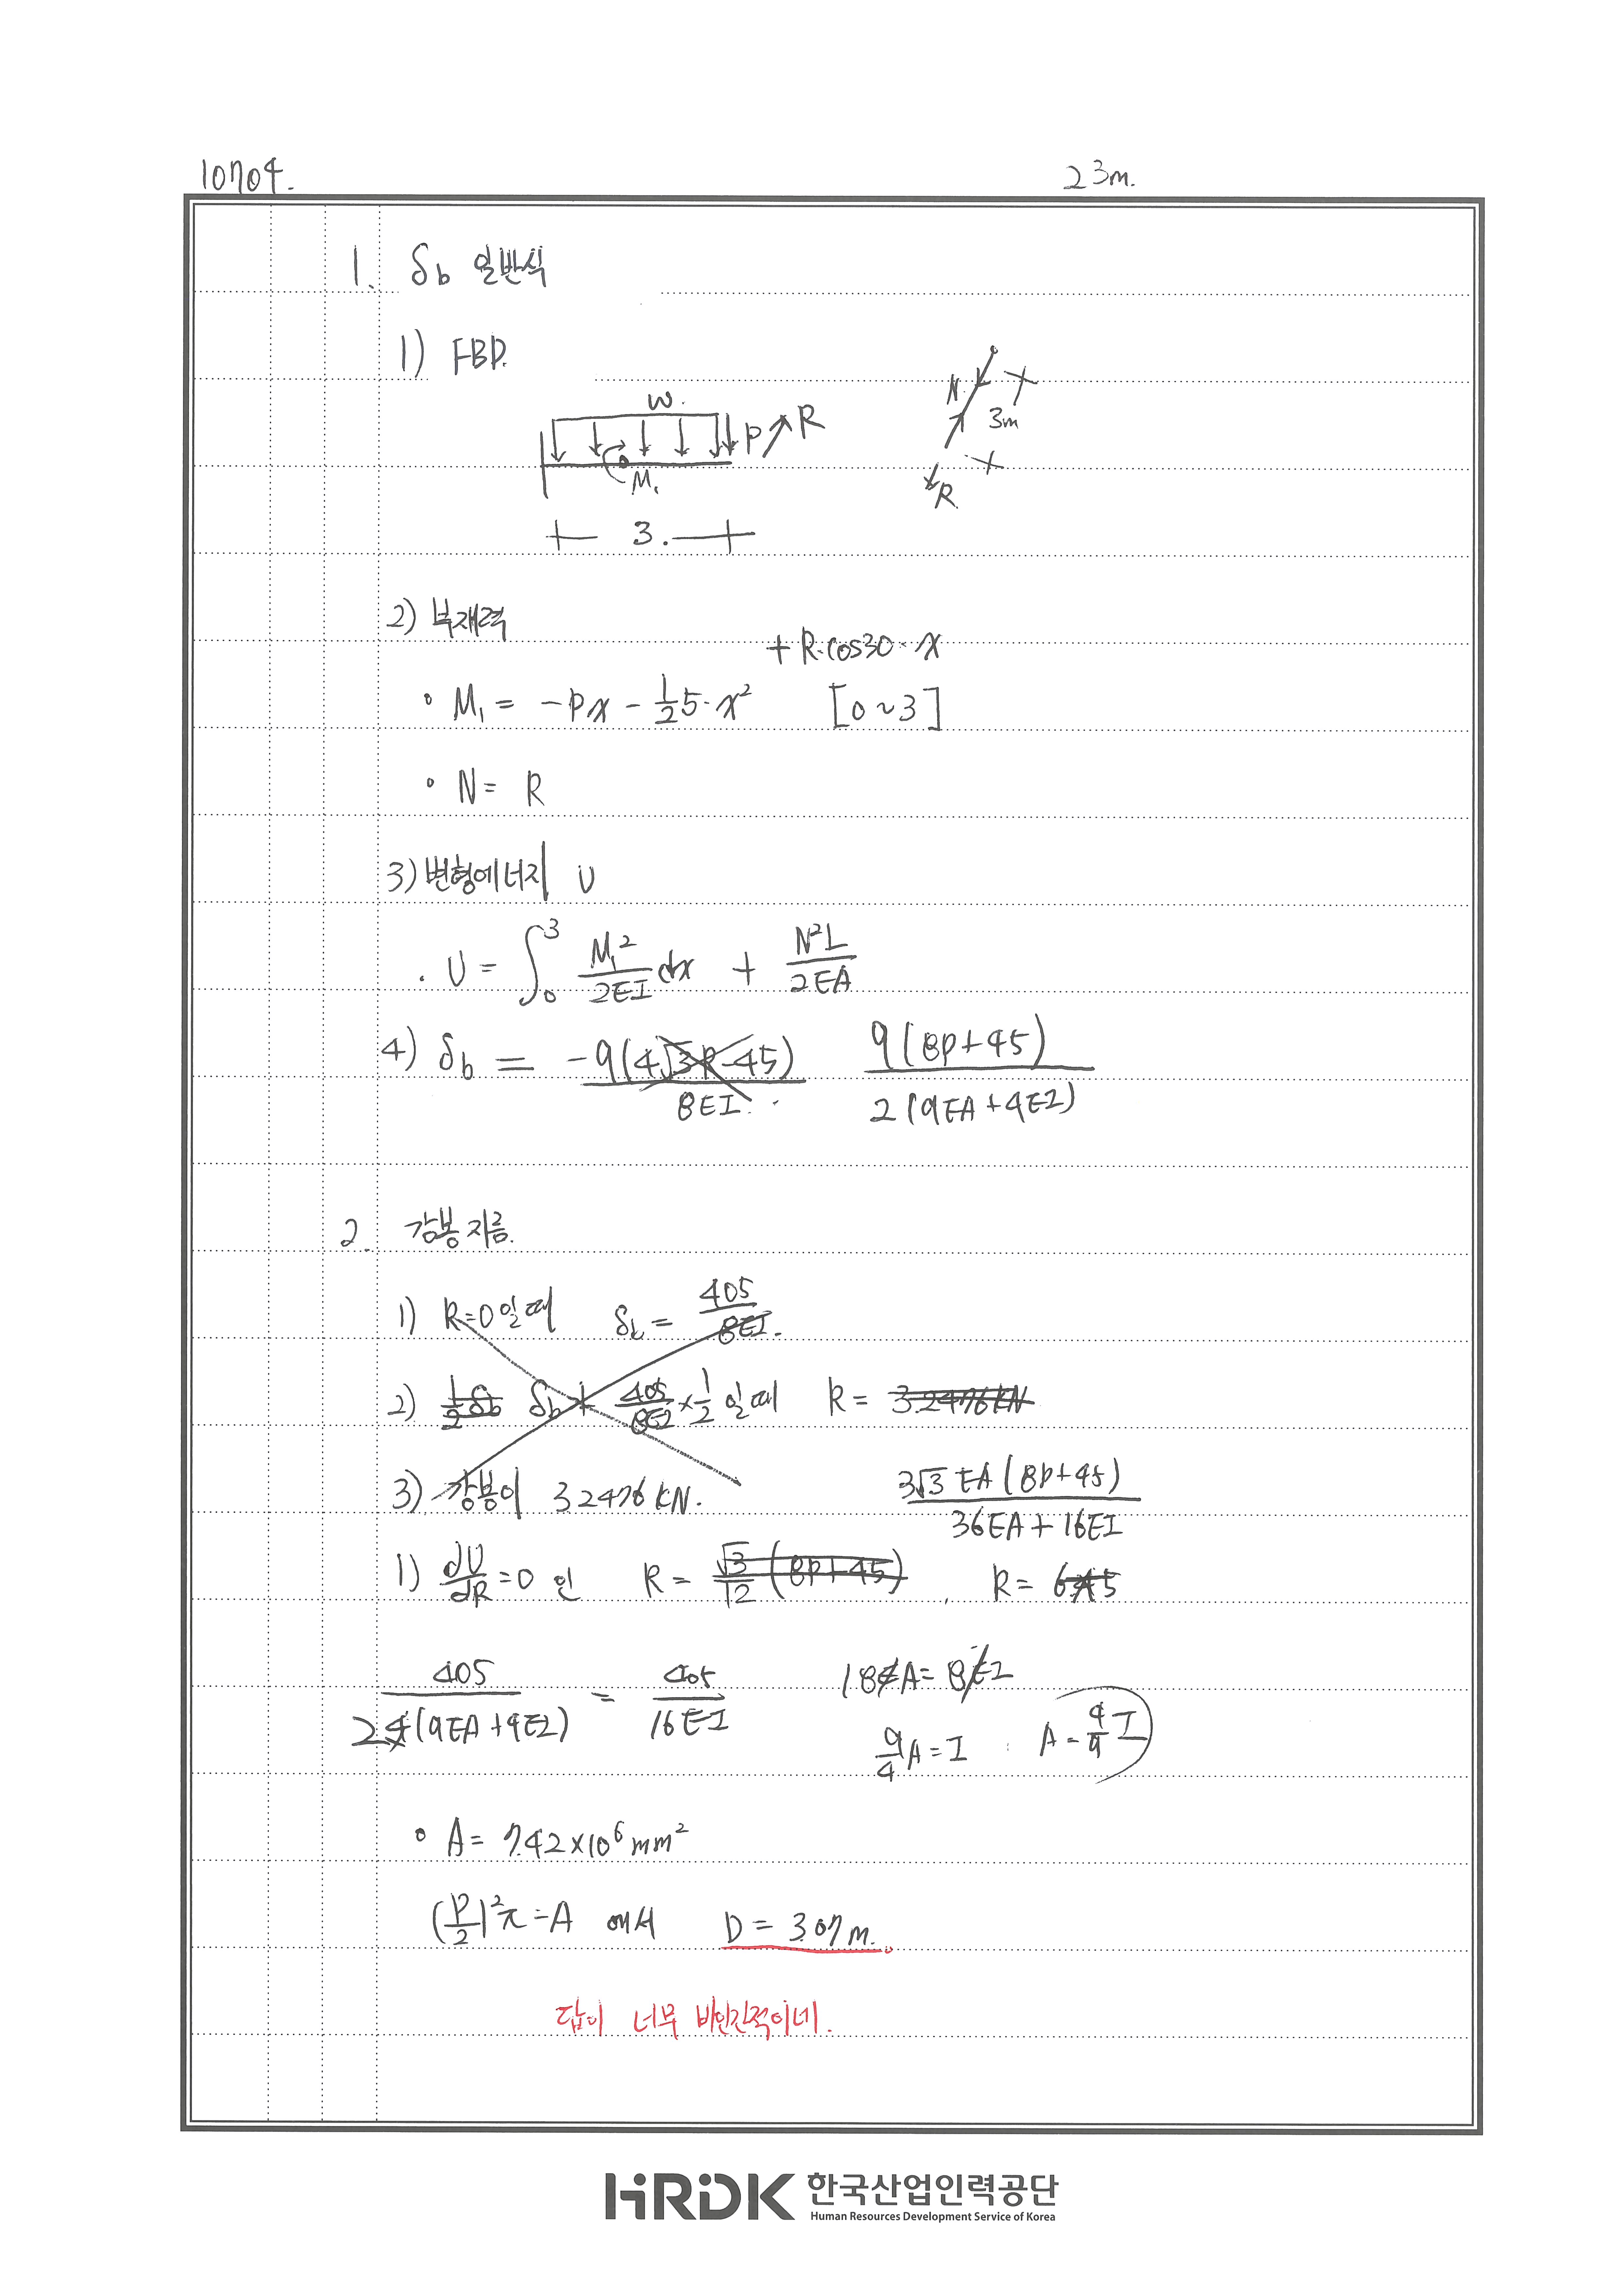 10704.
23m.
1. δb 일반식
1) FBD.
w.
P R
M₁
3.
N
3m
R
2) 부재력
+ R·cos30·x
• M₁ = -Px - 1/2 5·x² [0~3]
• N = R
3) 변형에너지 U
. U = ∫₀³ M₁²/2EI dx + N²L/2EA
4) δb = -9(4√3R-45)/8EI. 9(8P+45)/2(9EA+4EI)
2. 강봉 지름.
1) R=0일때 δb = 405/8EI.
2) 1/2 δb δb = 405/8EI × 1/2 일때 R = 3.2476KN
3) 강봉이 3.2476KN.
3√3 EA(8P+45)/36EA+16EI
1) dU/dR = 0 인 R = √3/12 (8P+45) , R = 645
405/2(9EA+4EI) = 405/16EI 18EA = 8EI
9/4 A = I A = 4/9 I
• A = 7.42×10⁶mm²
(D/2)²π = A 에서 D = 3.07m.
답이 너무 비인간적이네.
HRDK 한국산업인력공단
Human Resources Development Service of Korea